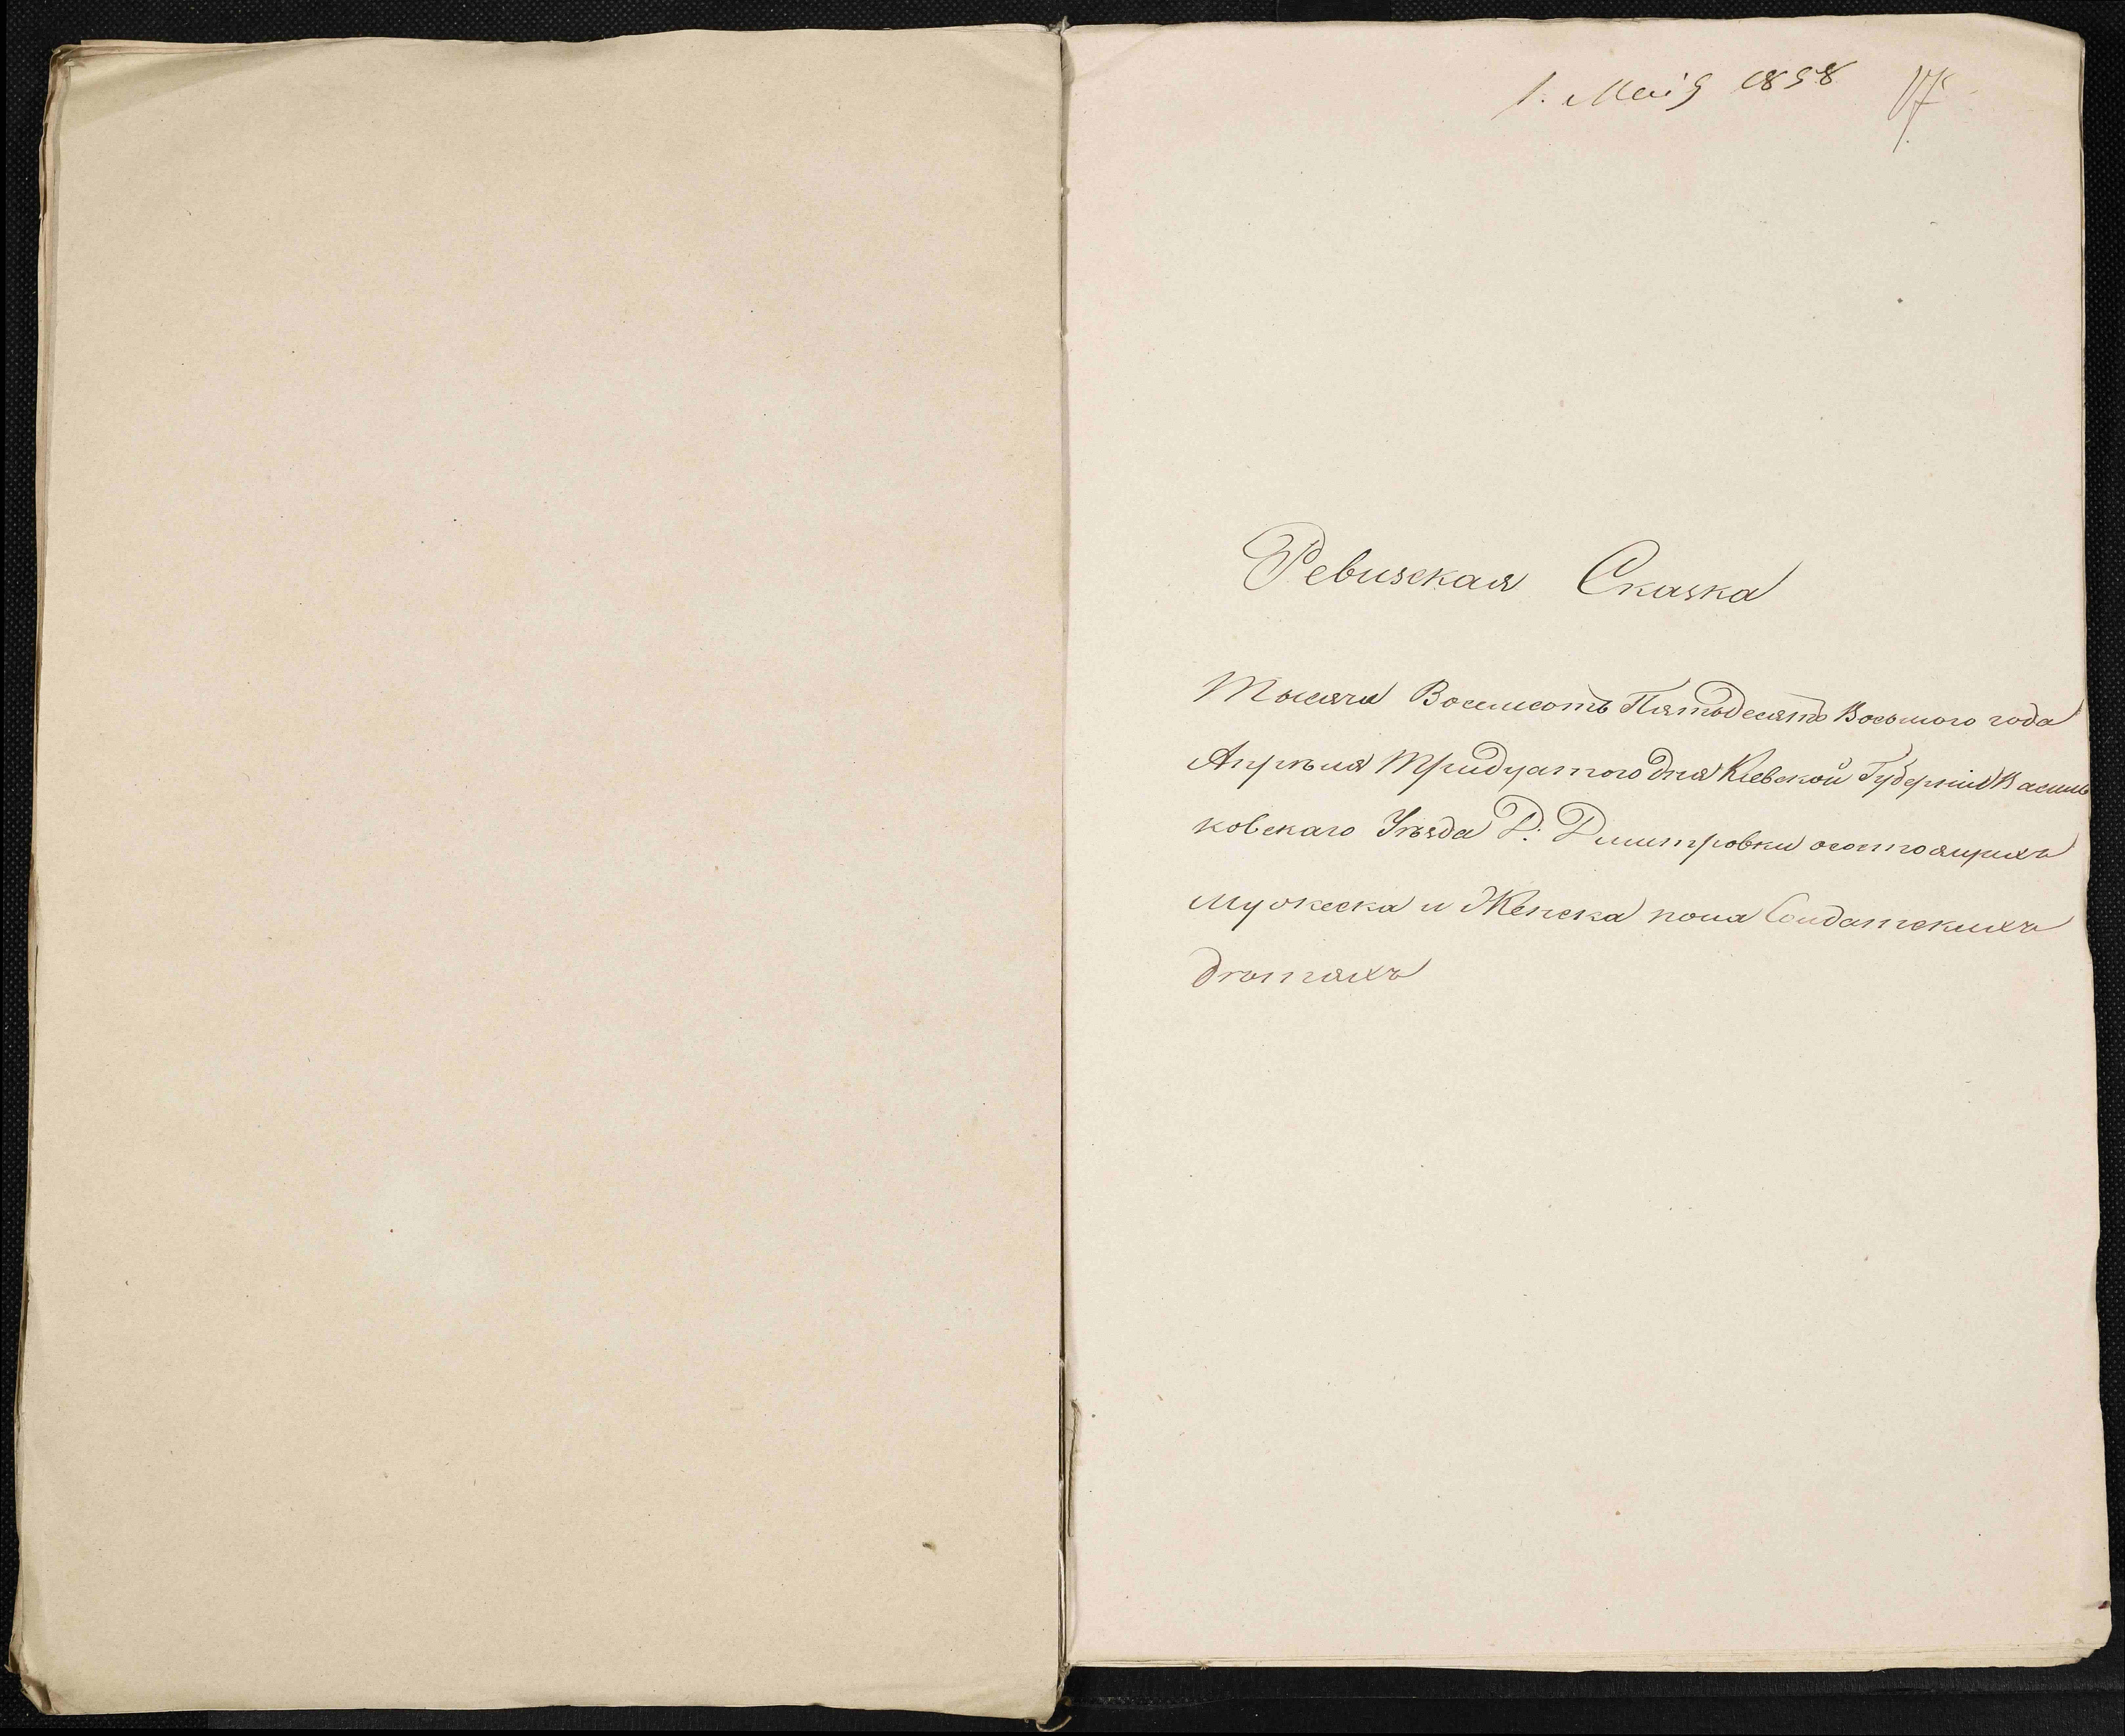 1. Маія 1858
Ревизская Сказка
Тысяча Восемсотъ Пятьдесятъ Восьмого года
Апрѣля Тридцатого дня Кіевской Губерніи Василь
ковскаго Уѣзда Д: Дмитровки осостоящихъ
мужеска и Женска пола Солдатскихъ
дѣтяхъ